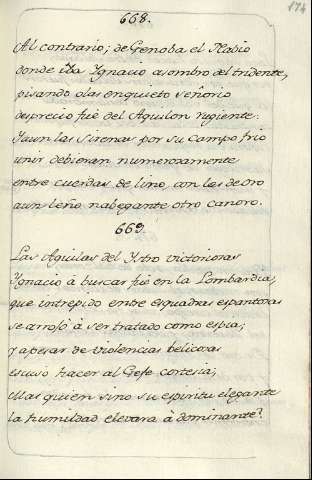 174
668.
Al contrario; de Genoba el Nabio
donde iba Ygnacio asombro del tridente,
pisando olas en quieto señorio
desprecio fuè del Aquilon rugiente:
Y aun las Sirenas por su campo frio
unir debieran numerosamente
entre cuerdas de lino, con las de oro
a un leño nabegante otro canoro.
669.
Las Aguilas del Ystro victoriosas
Ygnacio à buscar fuè en la Lombardia,
que intrepido entre esquadras espantosas
se arrojò à ser tratado como espia;
y apesar de violencias belicosas
escusò hacer al Gefe cortesia;
Mas quien sino su espiritu elegante
la humildad elevara à dominante?